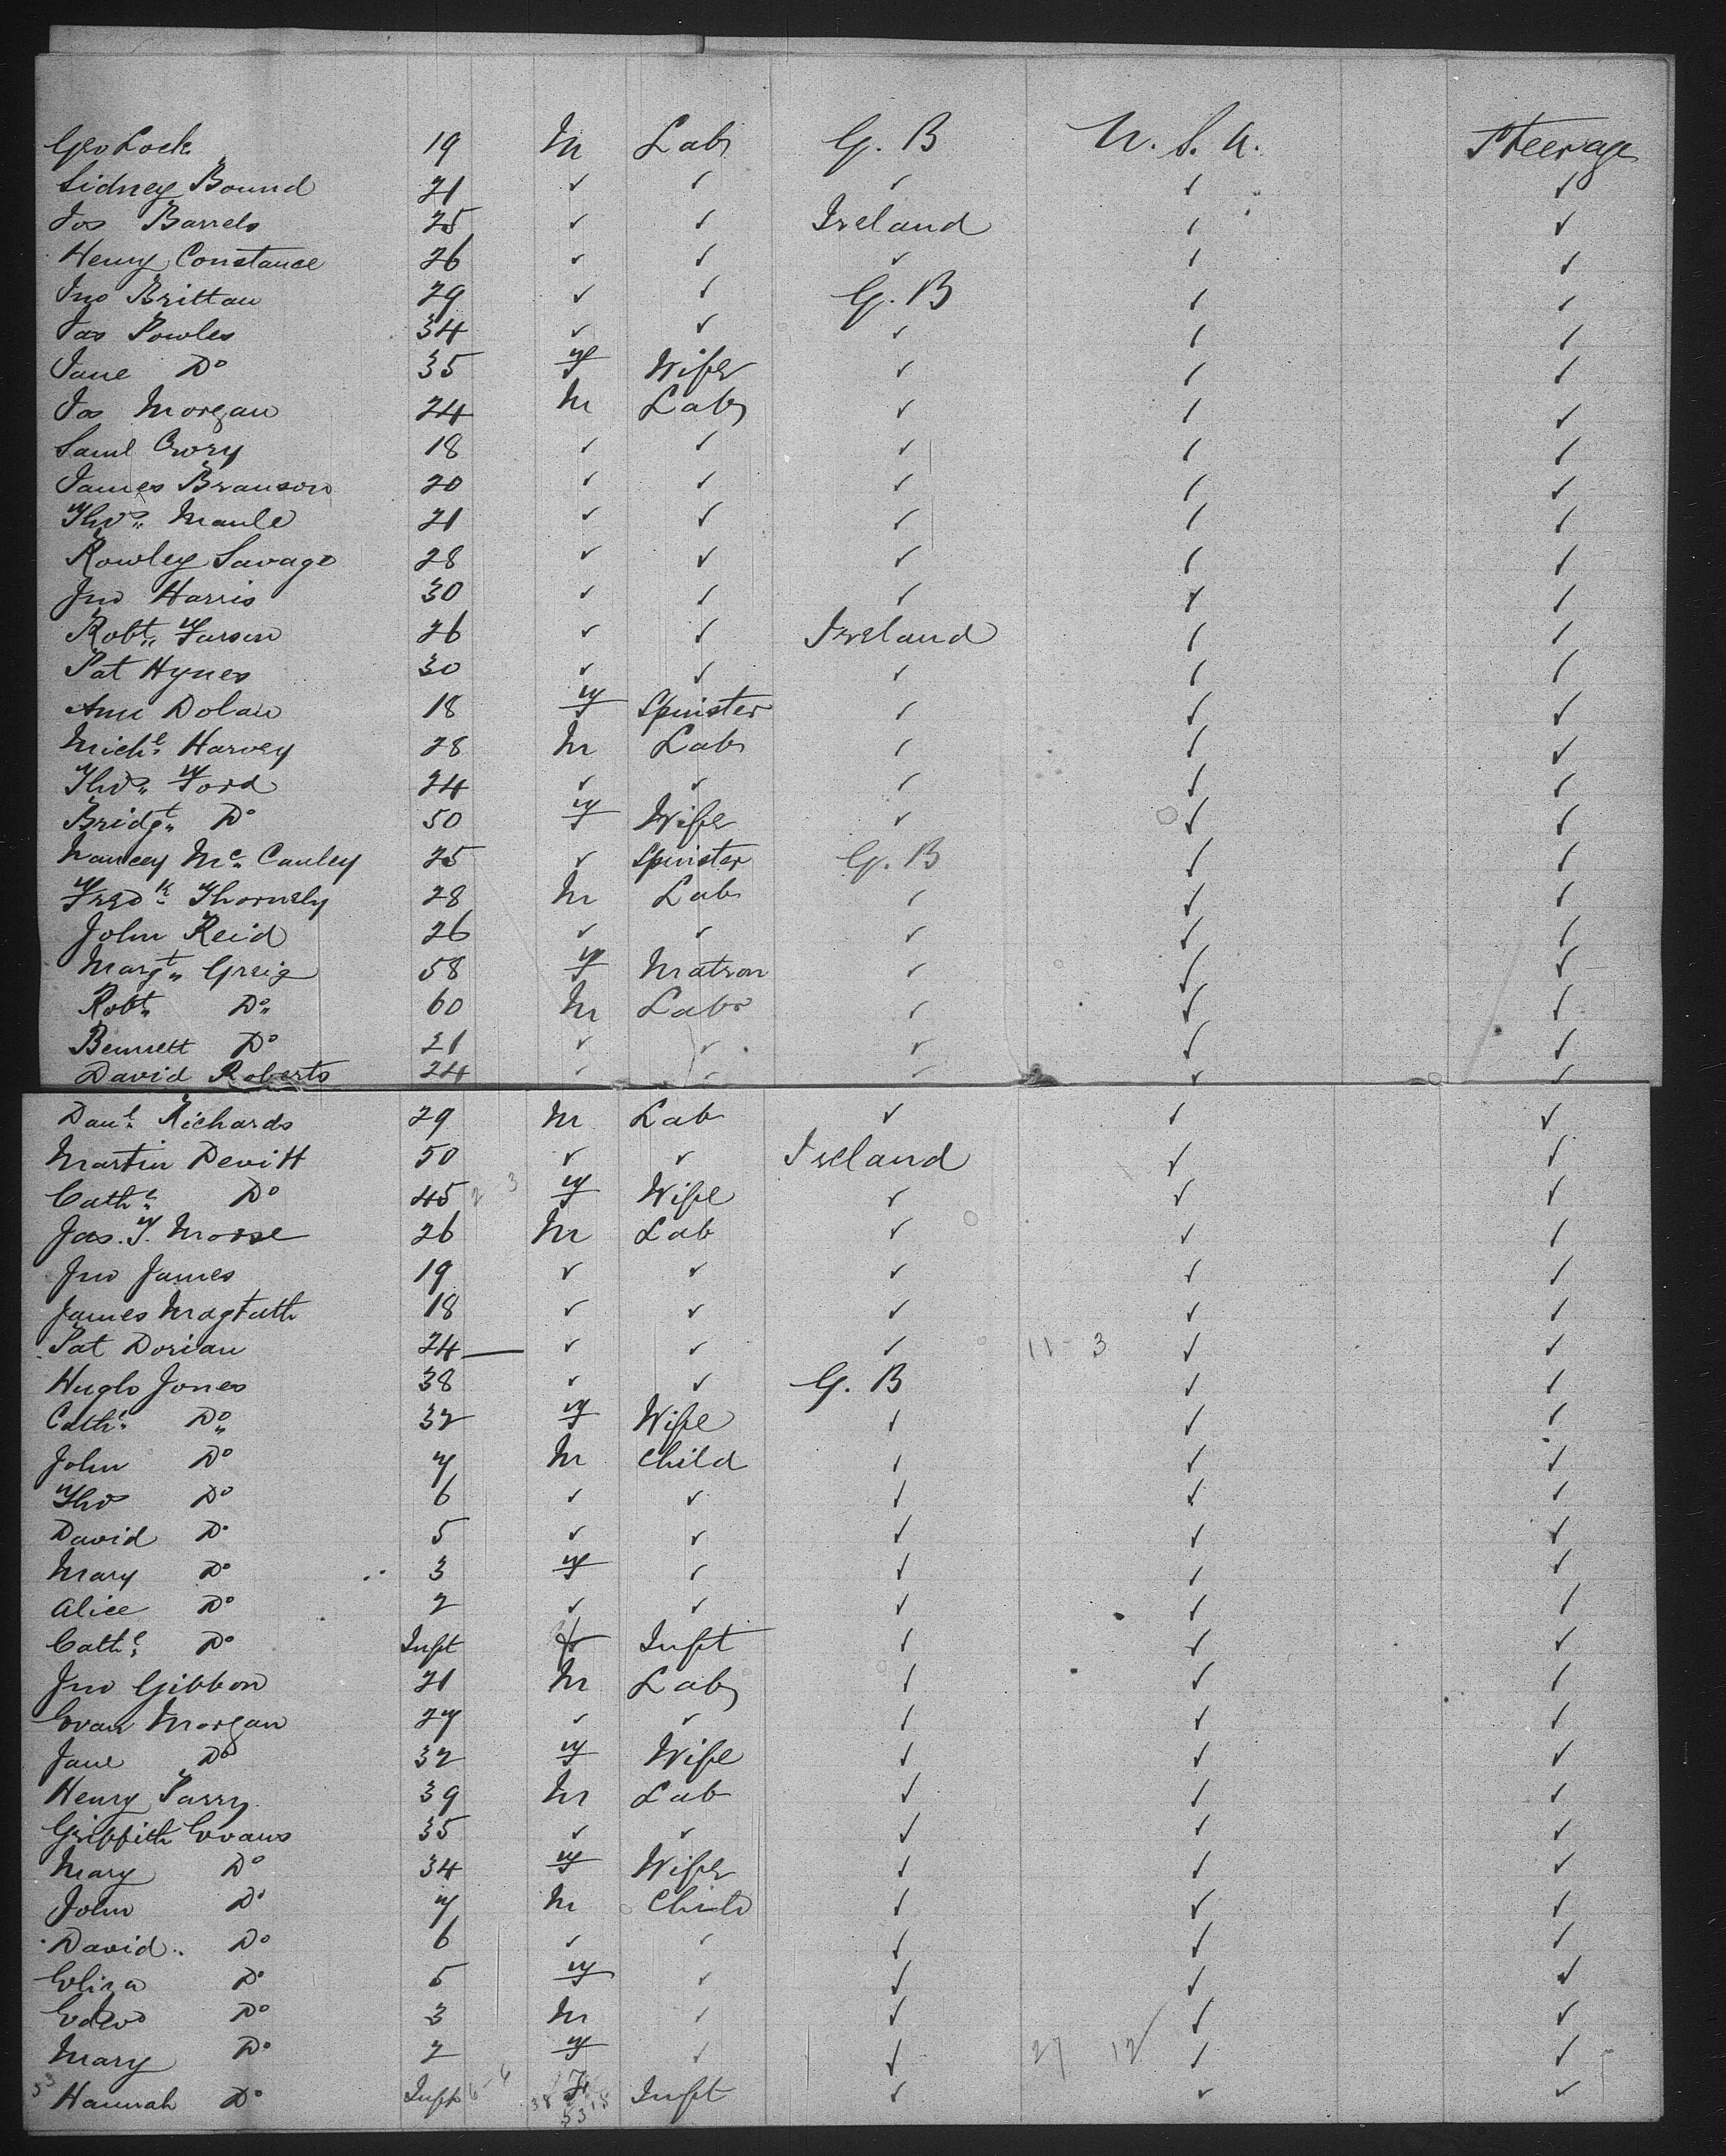 Geo Lock 19 M Lab G. B U. S. A. Steerage
Sidney Bound 21 ✓ ✓ ✓ ✓ ✓
Jos Barrels 25 ✓ ✓ Ireland ✓ ✓
Henry Constance 26 ✓ ✓ ✓ ✓ ✓
Jno Brittan 29 ✓ ✓ G. B ✓ ✓
Jas Powles 34 ✓ ✓ ✓ ✓ ✓
Jane Do 35 F Wife ✓ ✓ ✓
Jos Morgan 24 M Lab ✓ ✓ ✓
Saml Crory 18 ✓ ✓ ✓ ✓ ✓
James Branson 20 ✓ ✓ ✓ ✓ ✓
Thos Maule 21 ✓ ✓ ✓ ✓ ✓
Rowley Savage 28 ✓ ✓ ✓ ✓ ✓
Jno Harris 30 ✓ ✓ ✓ ✓ ✓
Robt 26 ✓ ✓ Ireland ✓ ✓
Pat Hynes 30 ✓ ✓ ✓ ✓ ✓
Ann Dolan 18 F Spinster ✓ ✓ ✓
Michl Harvey 28 M Lab ✓ ✓ ✓
Thos Ford 24 ✓ ✓ ✓ ✓ ✓
Bridgt Do 50 F Wife ✓ ✓ ✓
Nancey Mc Cauley 25 ✓ Spinster G. B ✓ ✓
Fredk Thornely 28 M Lab ✓ ✓ ✓
John Reid 26 ✓ ✓ ✓ ✓ ✓
Margt Greig 58 F Matron ✓ ✓ ✓
Robt Do 60 M Labr ✓ ✓ ✓
Bennett Do 21 ✓ ✓ ✓ ✓ ✓
David Roberts 24 ✓ ✓ ✓ ✓ ✓
Danl Richards 29 M Lab ✓ ✓ ✓
Martin Devitt 50 ✓ ✓ Ireland ✓ ✓
Cathe Do 45 2 3 F Wife ✓ ✓ ✓
Jas. T. Morse 26 M Lab ✓ ✓ ✓
Jno James 19 ✓ ✓ ✓ ✓ ✓
James 18 ✓ ✓ ✓ ✓ ✓
Pat Dorian 24 — ✓ ✓ ✓ 11 - 3 ✓ ✓
Hugh Jones 38 ✓ ✓ G. B ✓ ✓
Cathe Do 32 F Wife ✓ ✓ ✓
John Do 7 M Child ✓ ✓ ✓
Thos Do 6 ✓ ✓ ✓ ✓ ✓
David Do 5 ✓ ✓ ✓ ✓ ✓
Mary Do 3 F ✓ ✓ ✓ ✓
Alice Do 2 ✓ ✓ ✓ ✓ ✓
Cathe Do Inft F Inft ✓ ✓ ✓
Jno Gibbon 21 M Lab ✓ ✓ ✓
Evan Morgan 27 ✓ ✓ ✓ ✓ ✓
Jane Do 32 F Wife ✓ ✓ ✓
Henry Parry 39 M Lab ✓ ✓ ✓
Griffith Evans 35 ✓ ✓ ✓ ✓ ✓
Mary Do 34 F Wife ✓ ✓ ✓
John Do 7 M Child ✓ ✓ ✓
David Do 6 ✓ ✓ ✓ ✓ ✓
Eliza Do 5 F ✓ ✓ ✓ ✓
Edwd Do 3 M ✓ ✓ ✓ ✓
Mary Do 2 F ✓ ✓ 27 12 ✓ ✓
53 Hannah Do Inft 6-6 38 F 15 Inft ✓ ✓ ✓
53